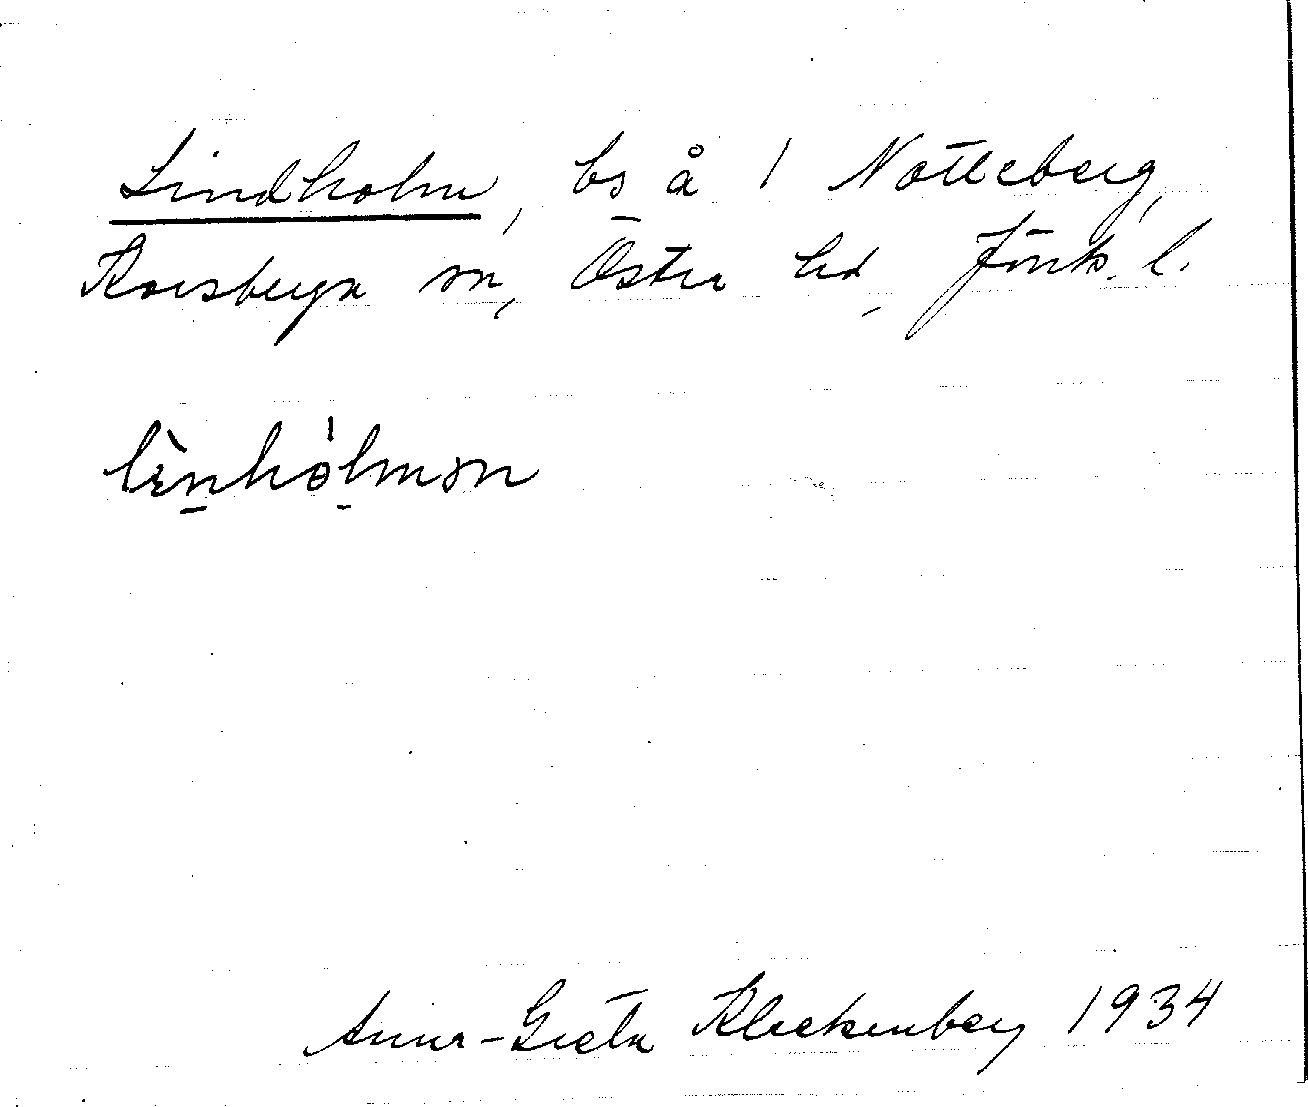 Lindholm, bs å 1 Nötteberg,
Korsberga sn, Östra hd, Jönk. l.
Anna-Greta Kleckenberg 1934